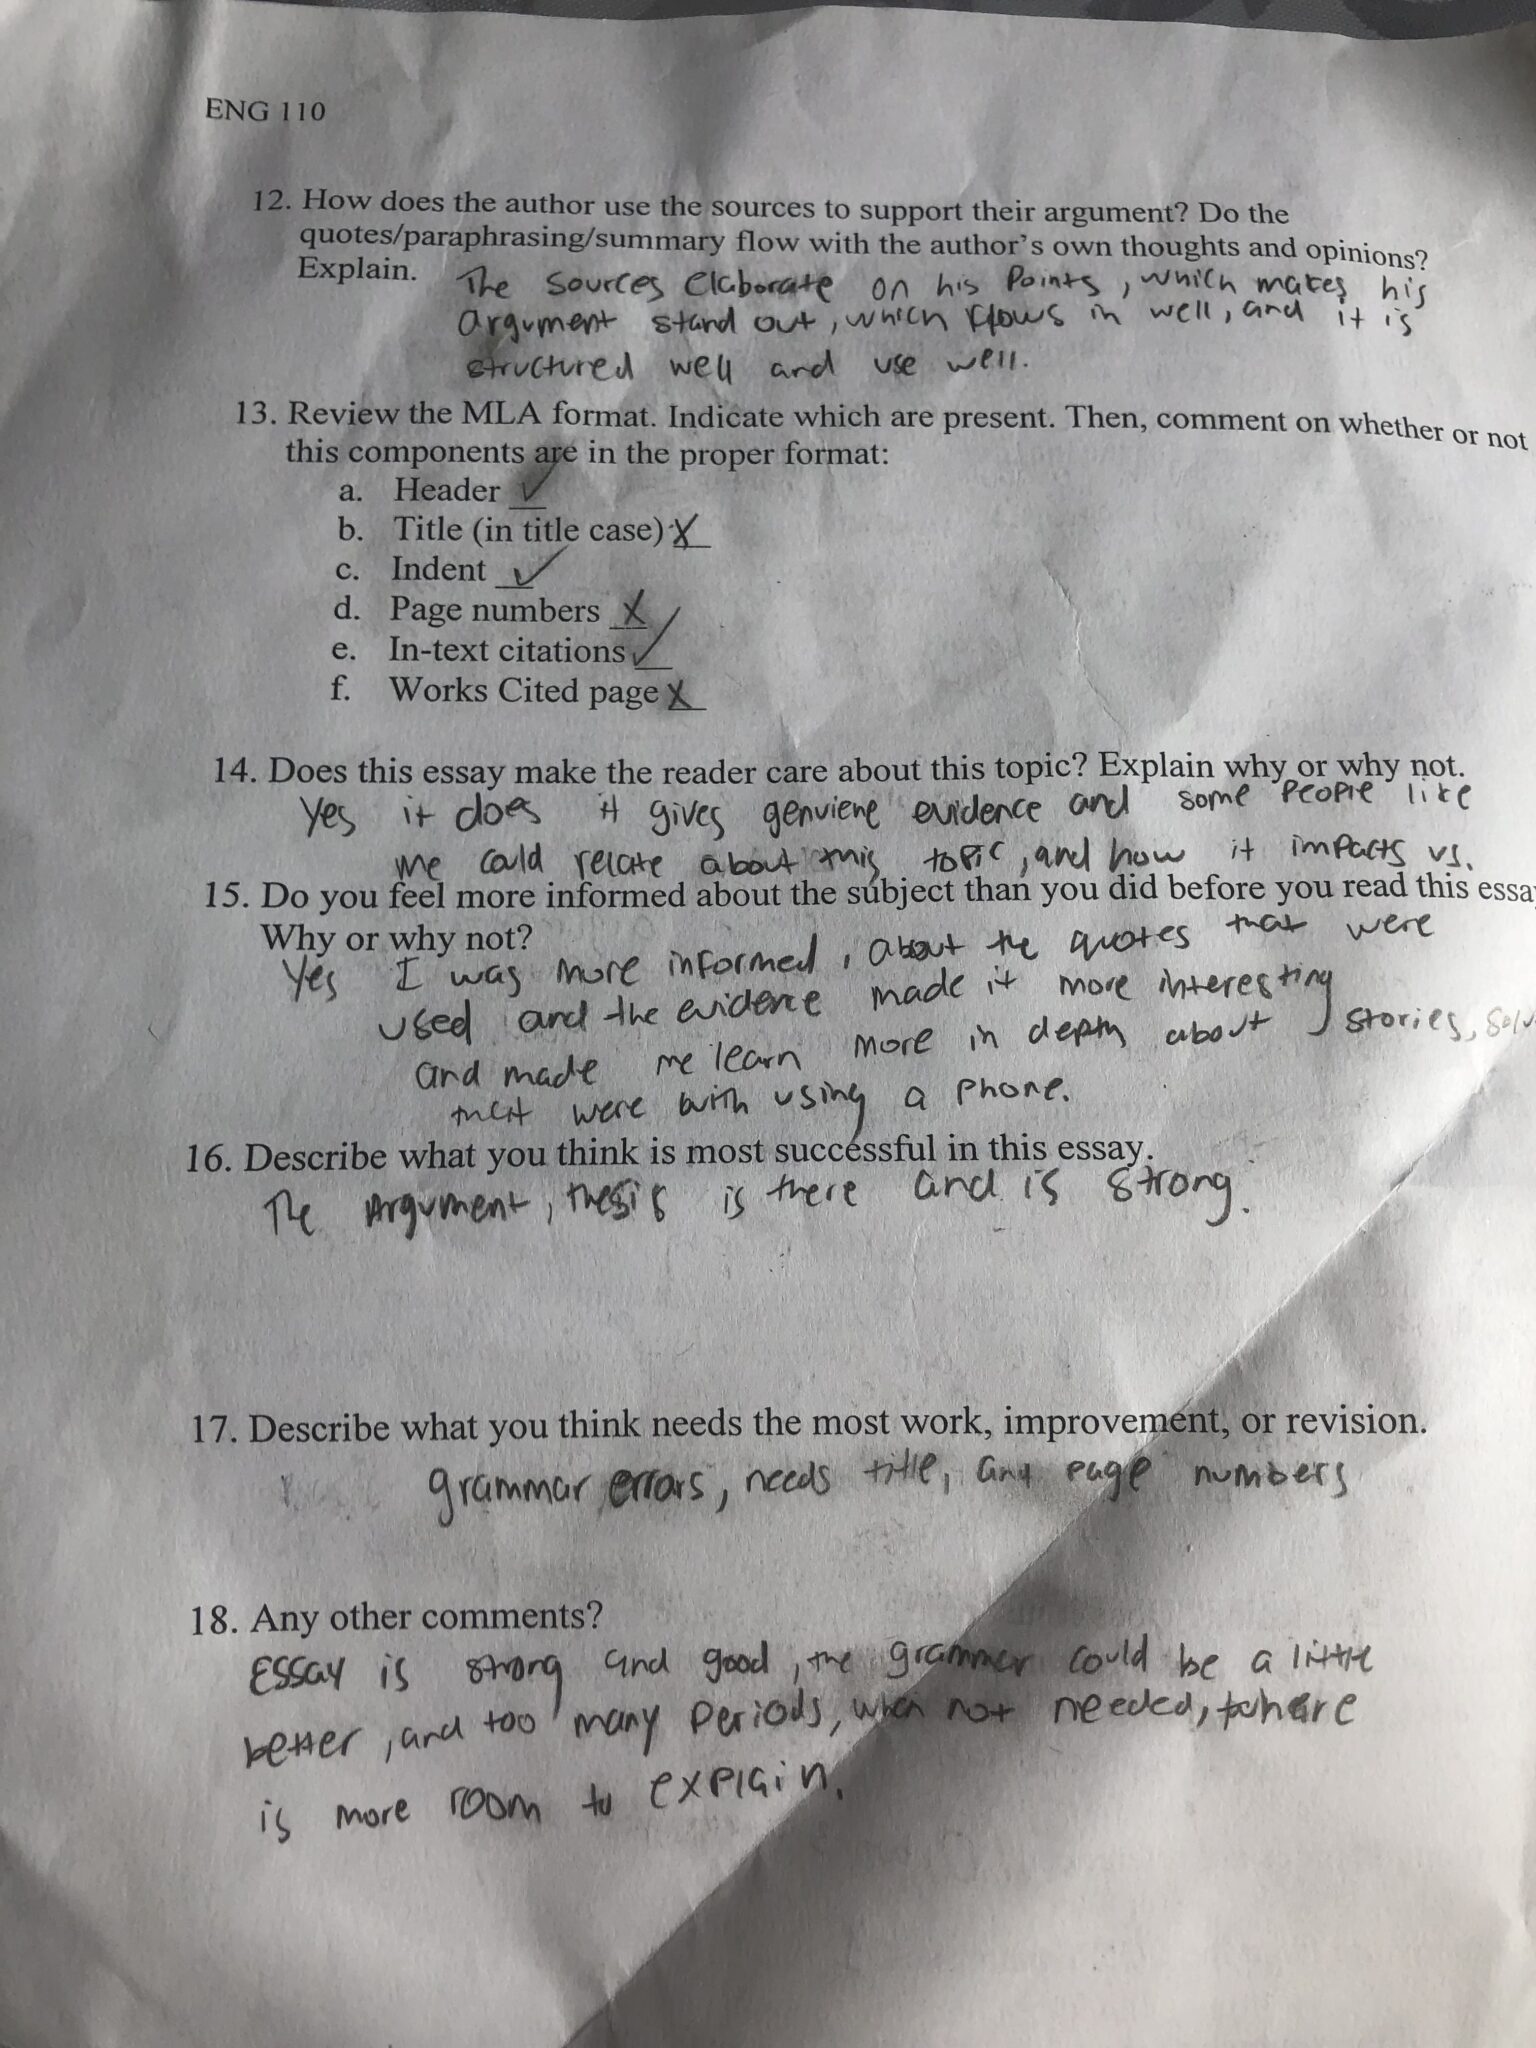 ENG 110
12. How does the author use the sources to support their argument? Do the
quotes/paraphrasing/summary flow with the author's own thoughts and opinions?
Explain. The sources elaborate on his Points, which makes his
argument stand out, which flows in well, and it is
structured well and use well.
13. Review the MLA format. Indicate which are present. Then, comment on whether or not
this components are in the proper format:
a. Header ✓
b. Title (in title case) X
c. Indent ✓
d. Page numbers X
e. In-text citations ✓
f. Works Cited page X
14. Does this essay make the reader care about this topic? Explain why or why not.
Yes it does it gives genviene evidence and some People like
me could relate about this topic, and how it impacts us.
15. Do you feel more informed about the subject than you did before you read this essa
Why or why not?
Yes I was more informed, about the quotes that were
used and the evidence made it more interesting
and made me learn more in depth about stories,
that were with using a phone.
16. Describe what you think is most successful in this essay.
The Argument, thesis is there and is strong.
17. Describe what you think needs the most work, improvement, or revision.
grammar errors, needs title, and page numbers
18. Any other comments?
Essay is strong and good, the grammer could be a little
better, and too many periods, when not needed, where
is more room to explain.